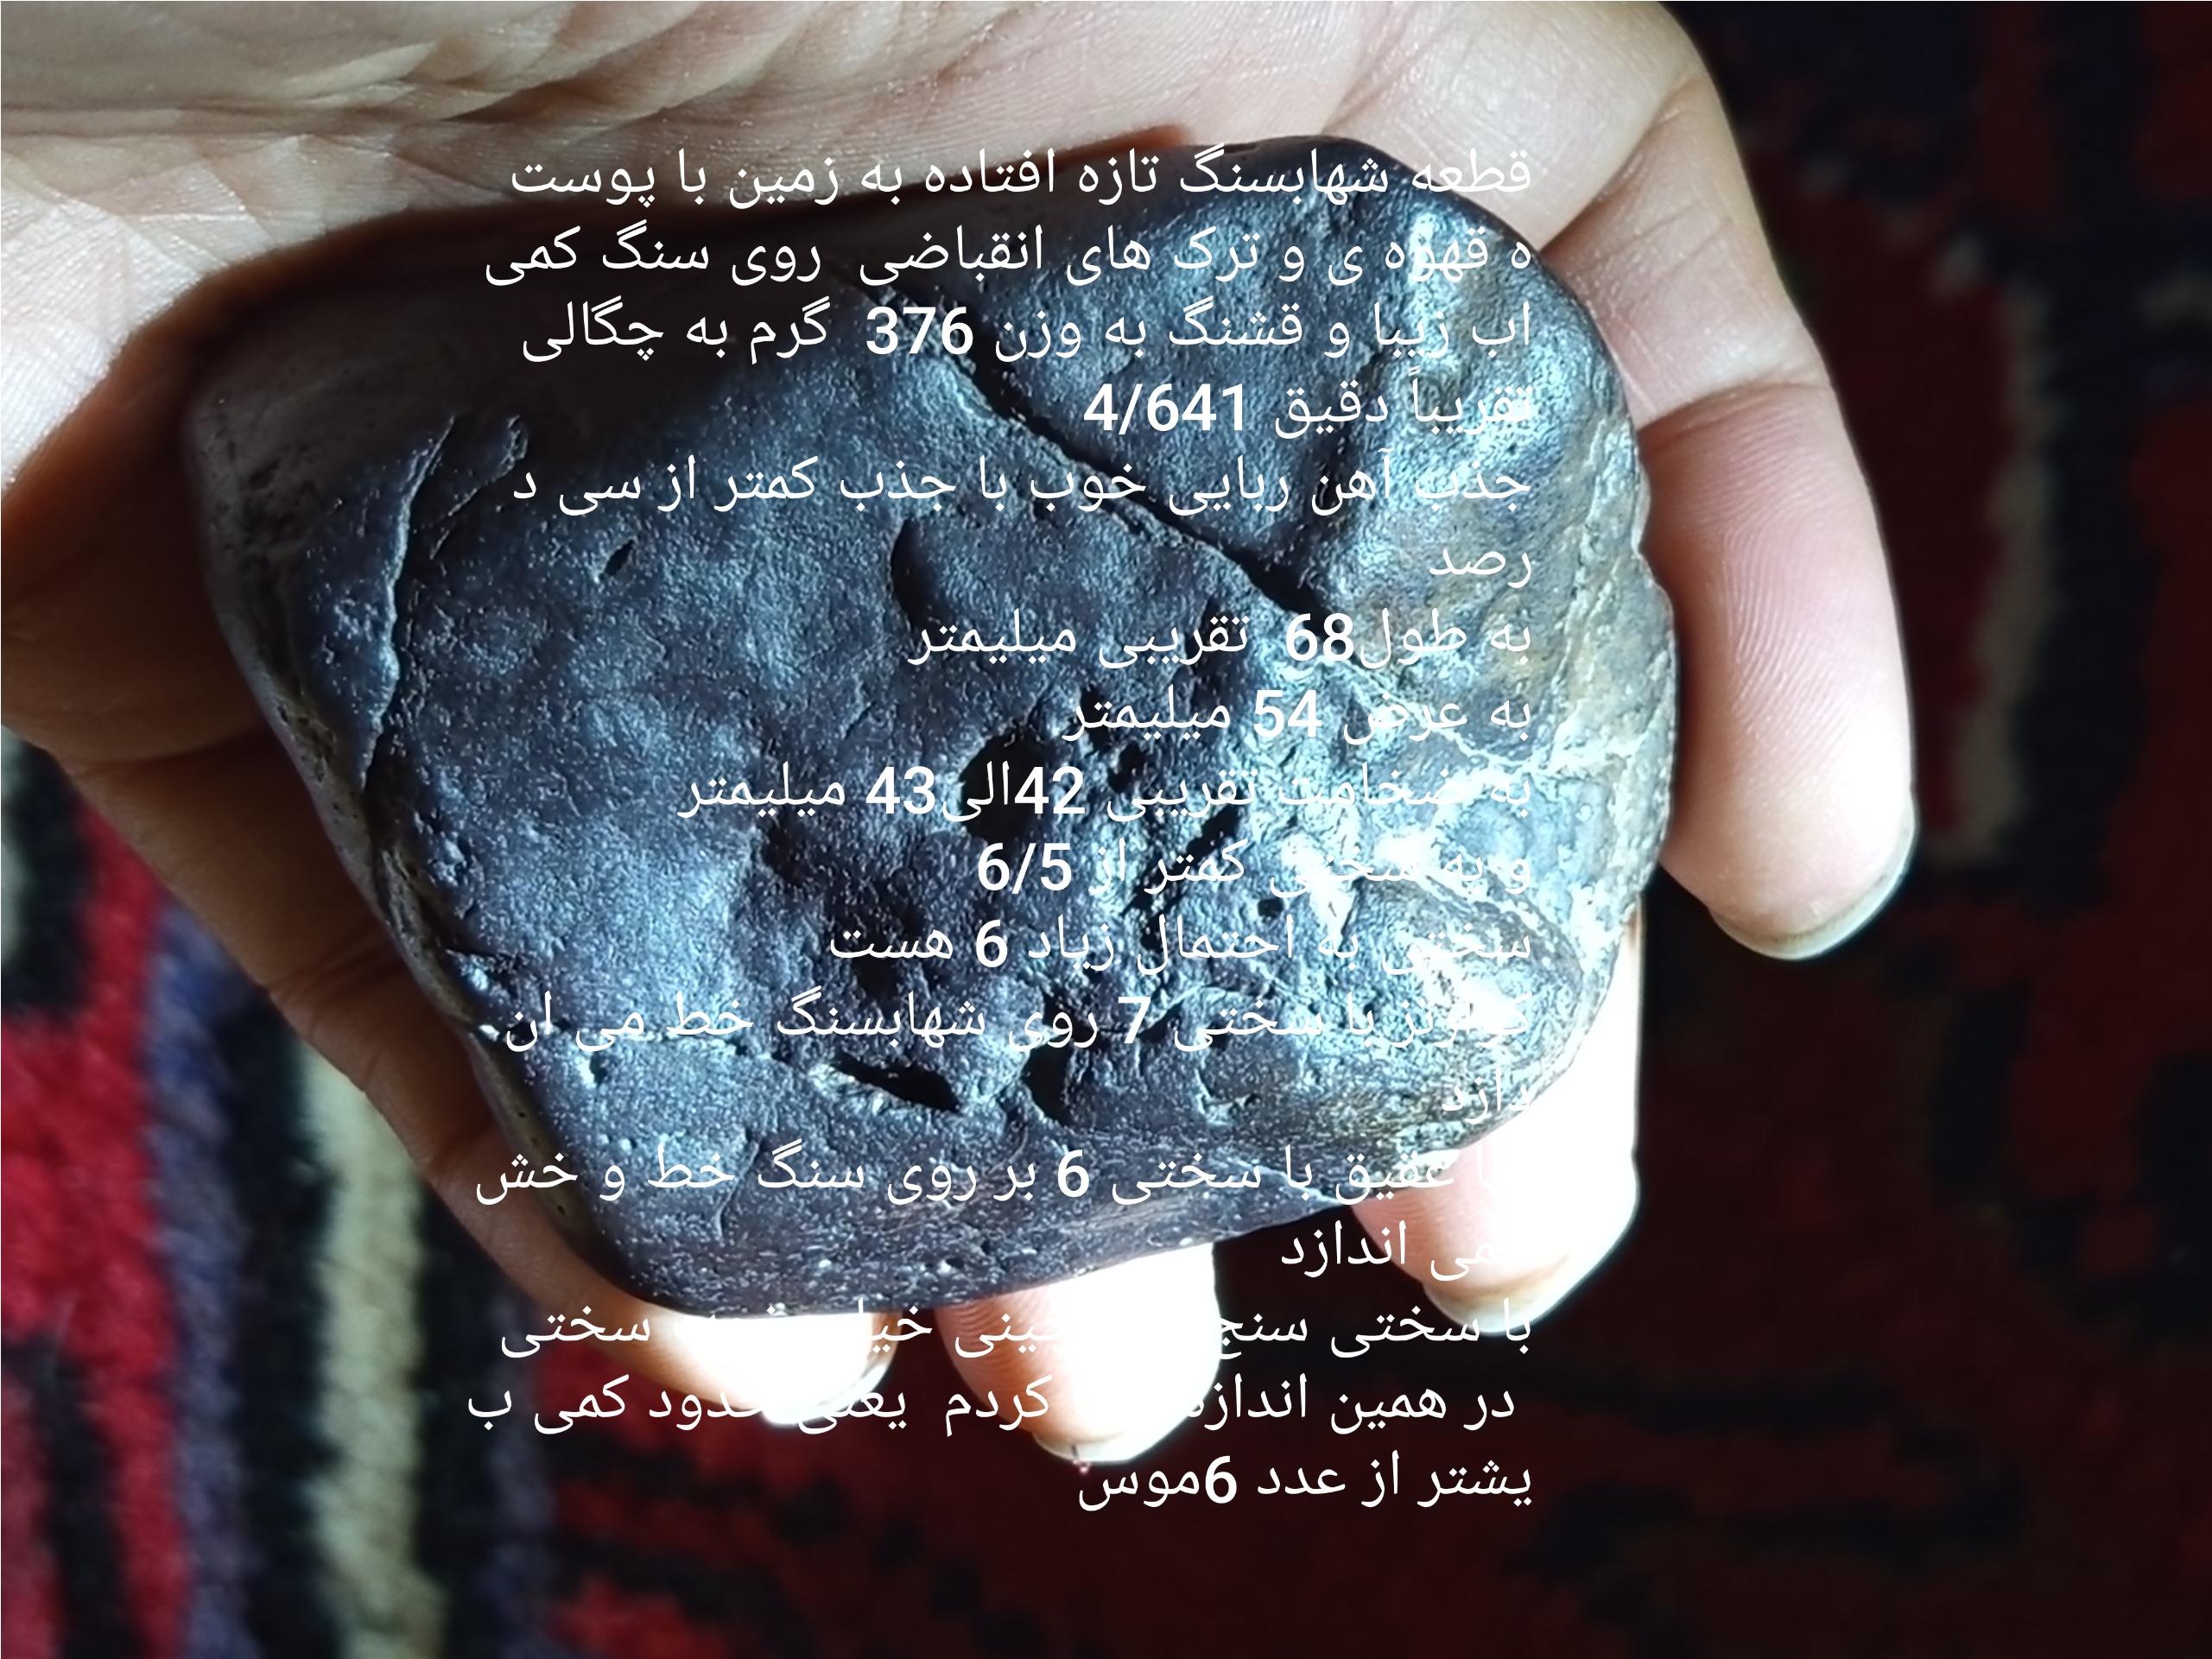 قطعه شهابسنگ تازه افتاده به زمین با پوست
ه قهوه ی و ترک های انقباضی روی سنگ کمی
اب زیبا و قشنگ به وزن 376 گرم به چگالی
تقریباً دقیق 4/641
جذب آهن ربایی خوب با جذب کمتر از سی د
رصد
به طول68 تقریبی میلیمتر
به عرض 54 میلیمتر
به ضخامت تقریبی 42الی43 میلیمتر
و به سختی کمتر از 6/5
سختی به احتمال زیاد 6 هست
با سختی 7 روی شهابسنگ خط می ان
دازد
عقیق با سختی 6 بر روی سنگ خط و خش
می اندازد
با سختی سنج سختی
در همین کردم یعنی حدود کمی ب
یشتر از عدد 6موس